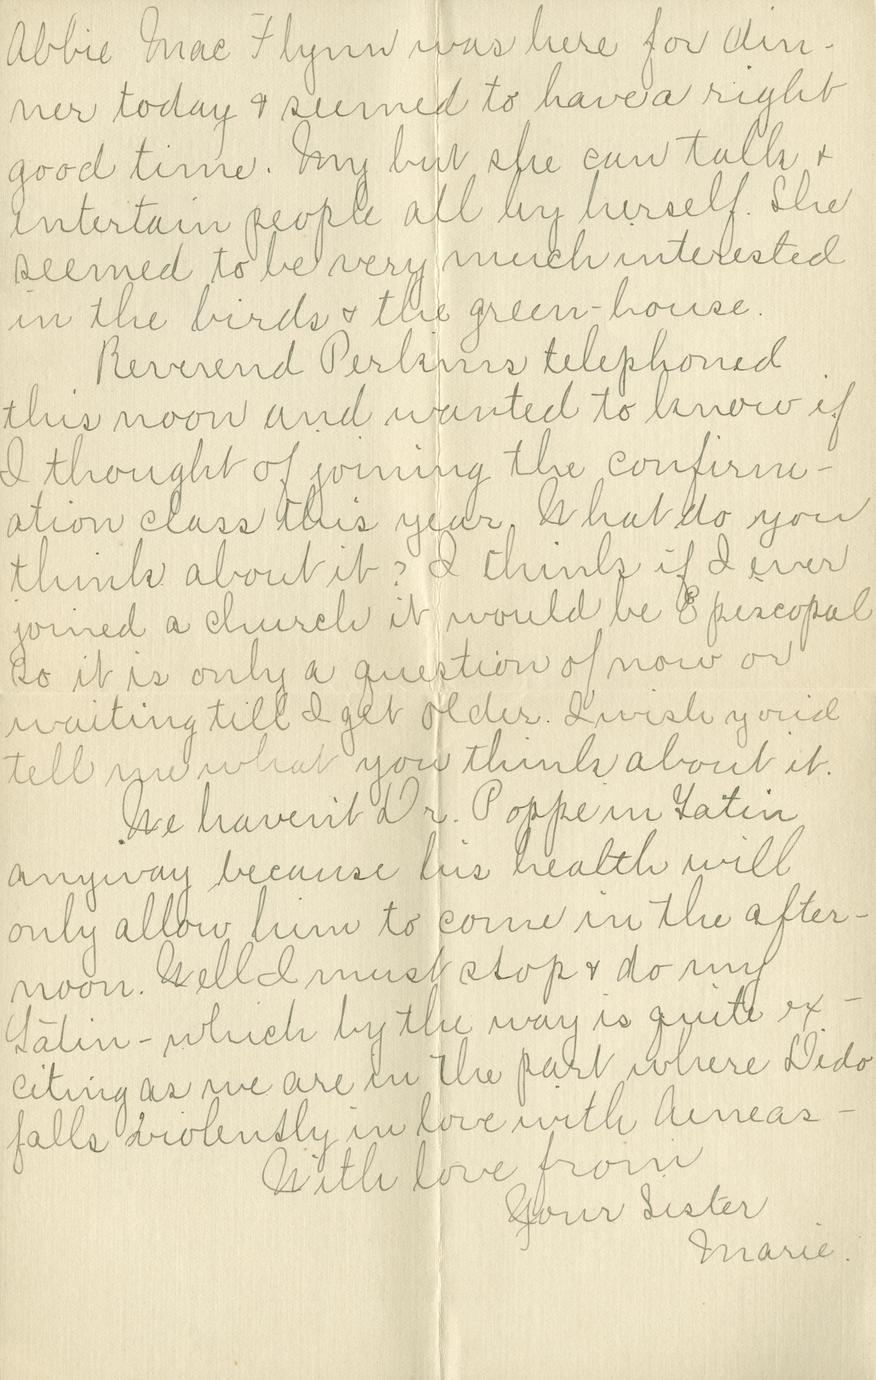 Abbie Mac Flynn was here for din-
ner today & seemed to have a right
good time. My but she can talk &
entertain people all by herself. She
seemed to be very much interested
in the birds & the green-house.
Reverend Perkins telephoned
this noon and wanted to know if
I thought of joining the confirm-
ation class this year. What do you
think about it? I think if I ever
joined a church it would be Episcopal
so it is only a question of now or
waiting till I get older. I wish you'd
tell me what you think about it.
We haven't Dr. Poppe in Latin
anyway because his health will
only allow him to come in the after-
noon. Well I must stop & do my
Latin - which by the way is quite ex-
citing as we are in the part where Dido
falls violently in love with Aeneas -
With love from
Your Sister
Marie.